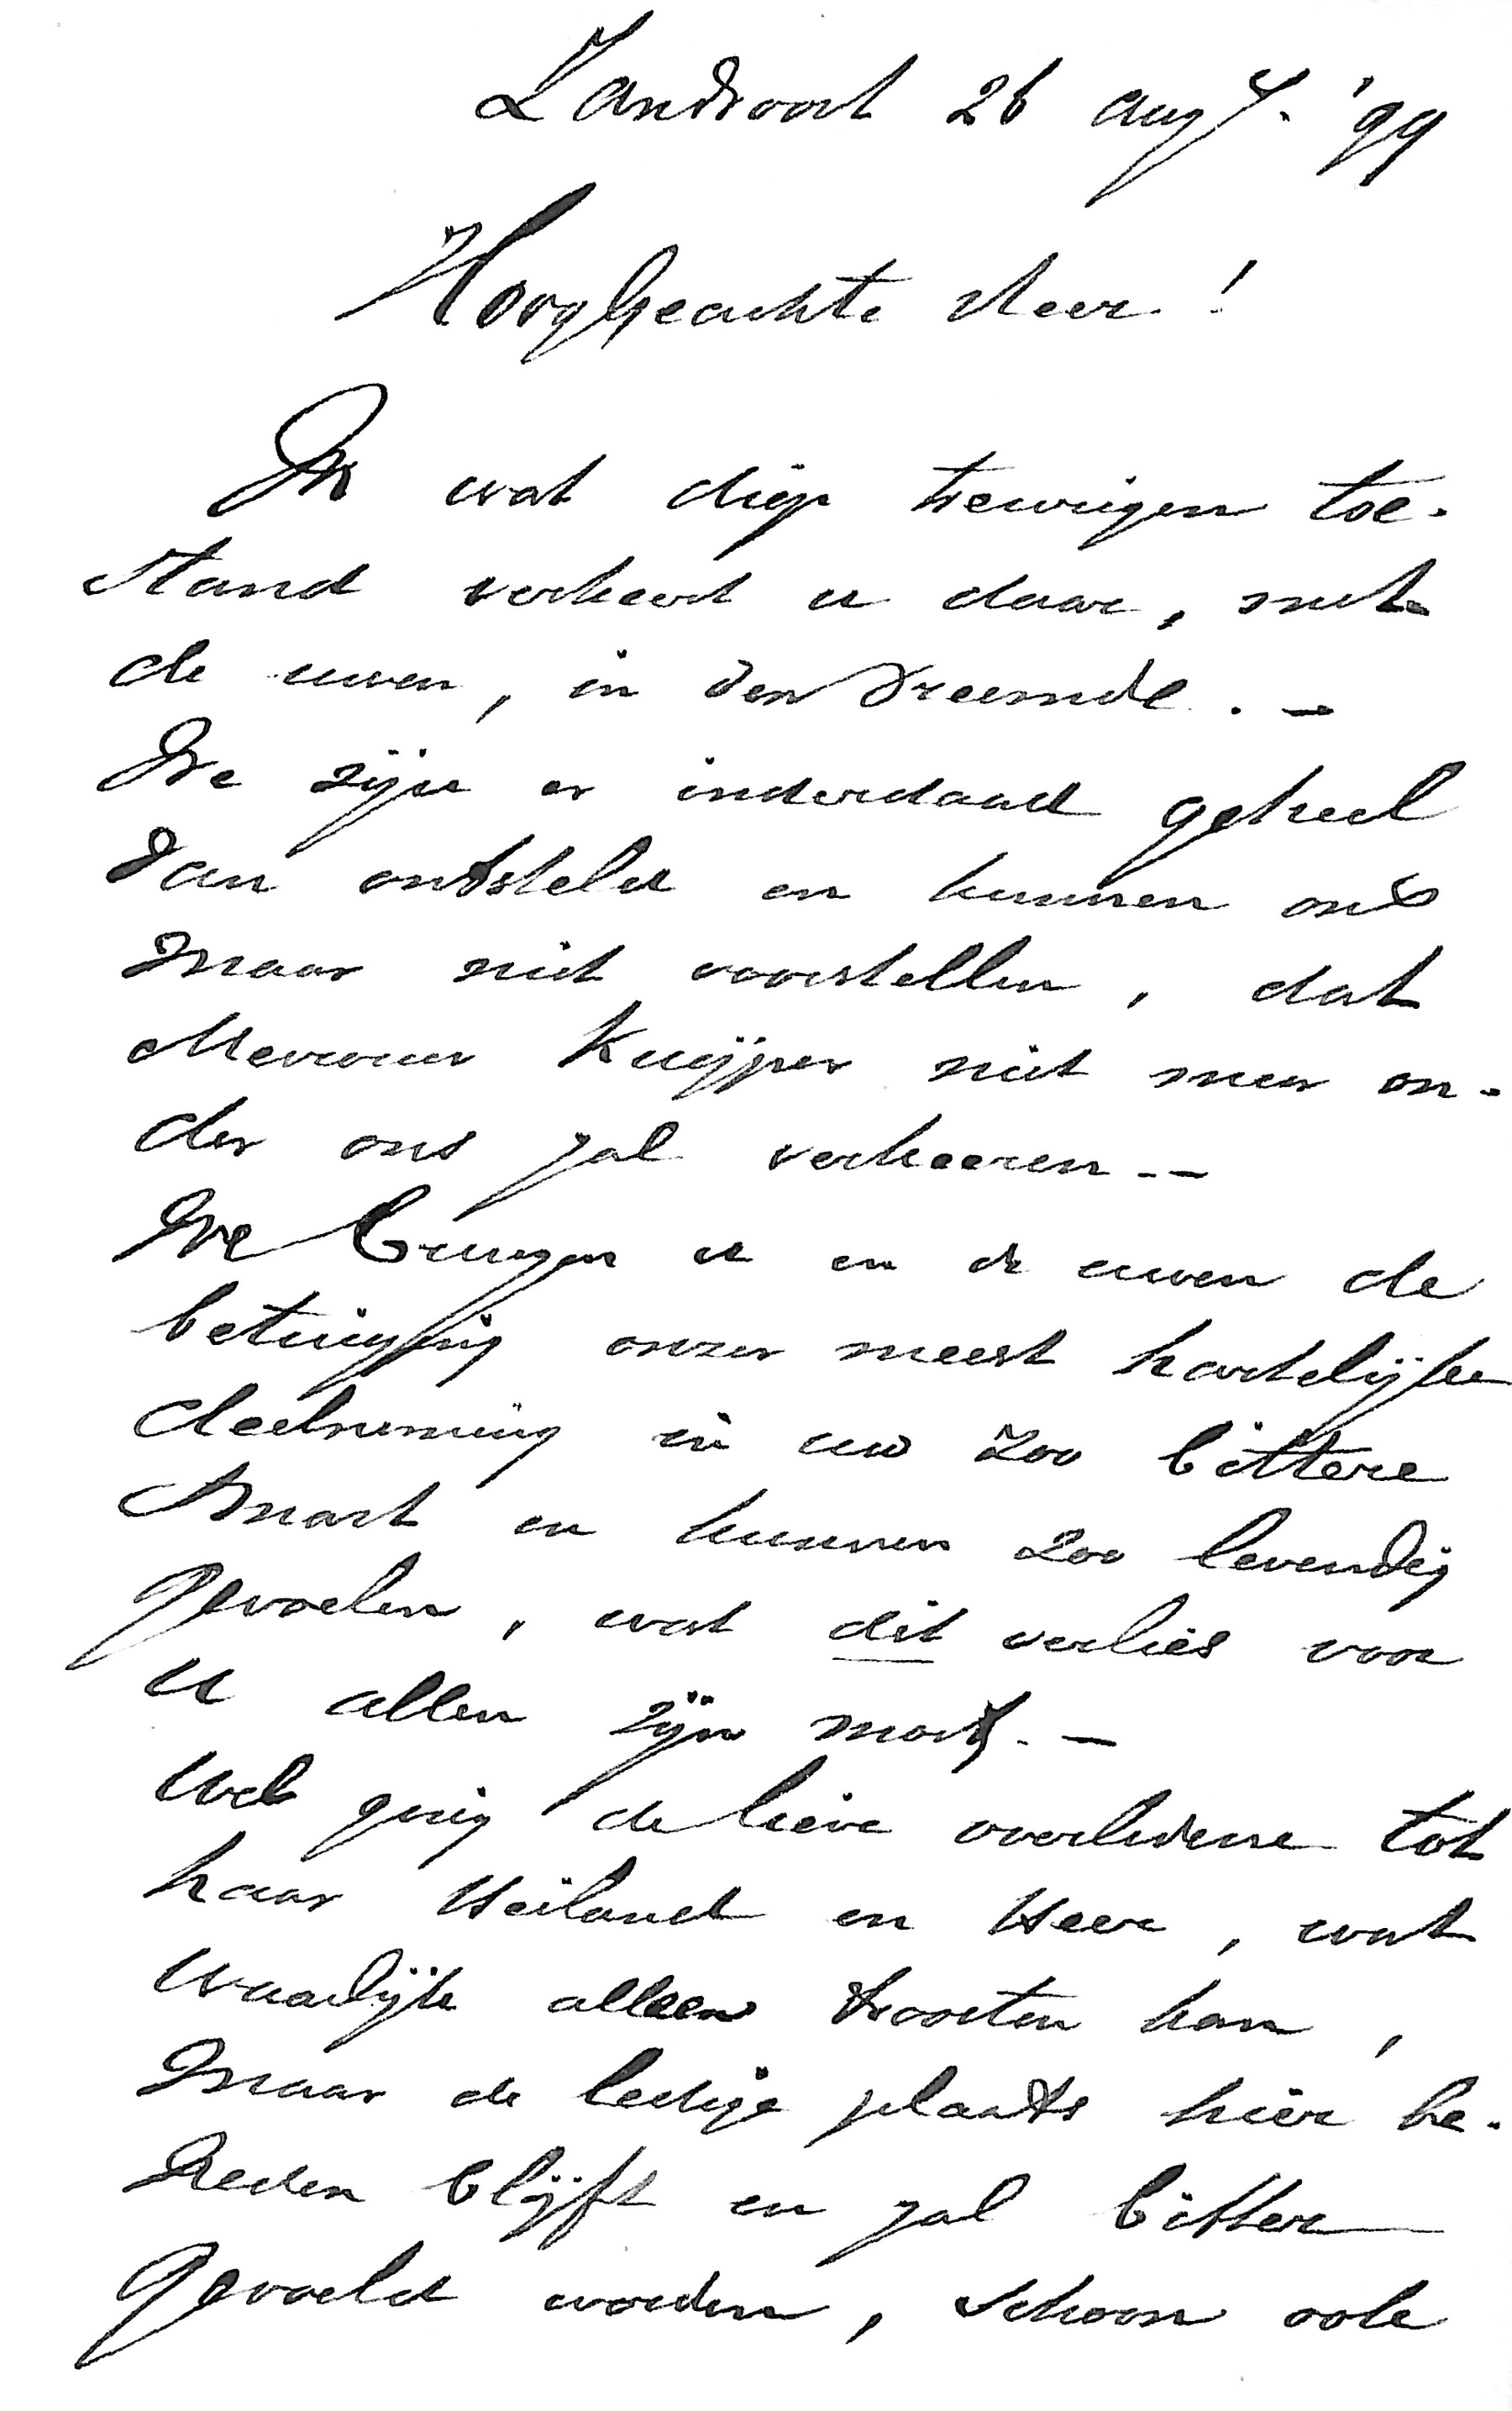 Zandvoort 26 Augs. '99
Hooggeachte Heer!
In wat diep treurigen toe-
stand verkeert u daar, met
de uwen, in den vreemde. –
We zijn er inderdaad geheel
van ontsteld en kunnen ons
maar niet voorstellen, dat
Mevrouw Kuijper niet meer on-
der ons zal verkeeren. –
We brengen u en de uwen de
betuiging onzer meest hartelijke
deelneming in uw zoo bittere
smart en kunnen zoo levendig
gevoelen, wat dit verlies voor
u allen zijn moet. –
Wel ging de lieve overledene tot
haar Heiland en Heer, wat
waarlijk alleen troosten kan,
maar de ledige plaats hier be-
neden blijft en zal bitter
gevoeld worden, schoon ook